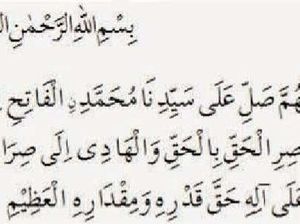 بِسْمِ اللهِ الرَّحْمٰنِ ال
هُمَّ صَلِّ عَلَى سَيِّدِنَا مُحَمَّدِنِ الْفَاتِحِ
صِرِ الْحَقِّ بِالْحَقِّ وَالْهَادِى اِلَى صِرَا
لَى آلِهِ حَقَّ قَدْرِهِ وَمِقْدَارِهِ الْعَظِيْمِ